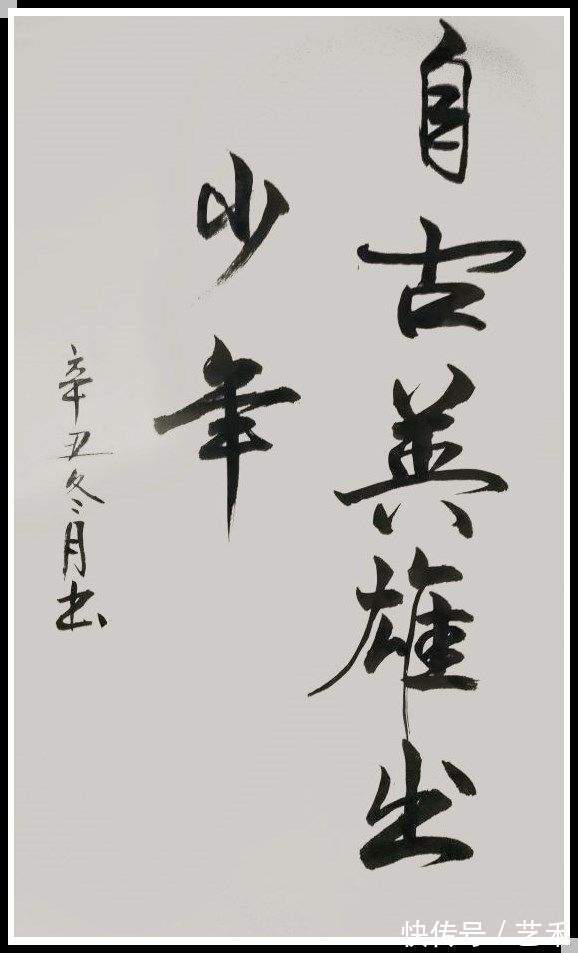 自古英雄出
少年
辛丑冬月书
快传号 / 艺